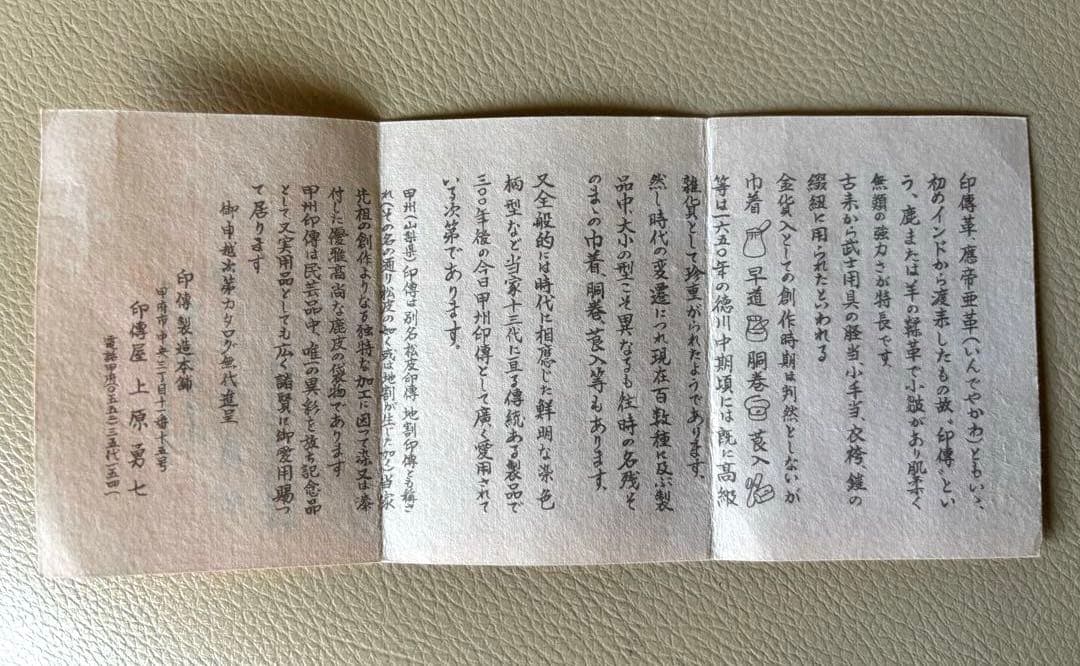 印傳革 應帝亜革(いんでやかわ)ともいゝ、
初めインドから渡来したもの故、印傳〟とい
う、鹿または羊の鞣革で小皺があり肌柔く
無類の強力さが特長です。
古来から武士用具の経当小手当、衣袴、鎧の
綴紐に用られたといわれる
金貨入としての創作時期は判然としないが
巾着 早道 胴巻 莨入
等は一六五〇年の徳川中期頃には既に高級
雑貨として珍重がられたようであります。
然し時代の変遷につれ現在百数種に及ぶ製
品中、大小の型こそ異なるも往時の名残そ
のまゝの巾着、胴巻、莨入等もあります。
又全般的には時代に相應した鮮明な染色
柄型など当家十三代に亘る傳統ある製品で
三〇〇年後の今日甲州印傳として廣く愛用されて
いる次第であります。
甲州(山梨県)印傳は別名松皮印傳 地割印傳とも称さ
れ(その名の通り松皮の如く或は地割が生じた如く)当家
先祖の創作よりなる独特な加工に因って染又は漆
付した優雅高尚な鹿皮の袋物であります
甲州印傳は民芸品中、唯一の異彩を放ち記念品
として又実用品としても広く諸賢に御愛用賜っ
て居ります
御申越次第カタログ無代進呈
印傳製造本舗
甲府市中央三丁目十一番十五号
印傳屋 上原勇七
電話甲府〇五五二